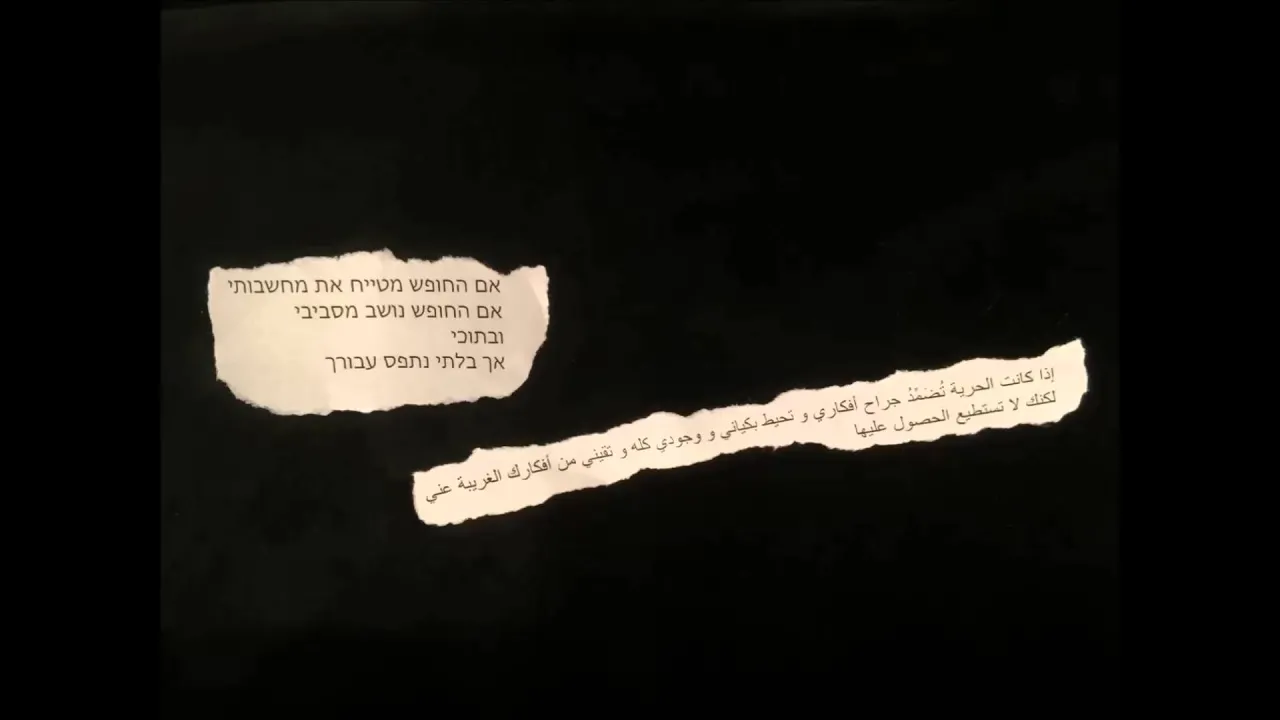 אם החופש מטייח את מחשבותי
אם החופש נושב מסביבי
ובתוכי
אך בלתי נתפס עבורך
إذا كانت الحرية تُضَمِّدُ جراح أفكاري و تحيط بكياني و وجودي كله و تقيني من أفكارك الغريبة عني
لكنك لا تستطيع الحصول عليها